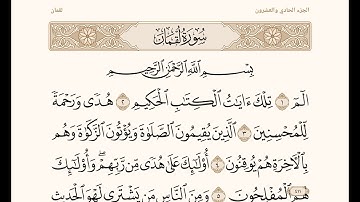 الجزء الحادي والعشرون
لقمان
سُورَةُ لُقْمَان
بِسْمِ اللَّهِ الرَّحْمَٰنِ الرَّحِيمِ
الٓمٓ ١ تِلْكَ ءَايَٰتُ ٱلْكِتَٰبِ ٱلْحَكِيمِ ٢ هُدًى وَرَحْمَةً
لِّلْمُحْسِنِينَ ٣ ٱلَّذِينَ يُقِيمُونَ ٱلصَّلَوٰةَ وَيُؤْتُونَ ٱلزَّكَوٰةَ وَهُم
بِٱلْءَاخِرَةِ هُمْ يُوقِنُونَ ٤ أُو۟لَٰٓئِكَ عَلَىٰ هُدًى مِّن رَّبِّهِمْ ۖ وَأُو۟لَٰٓئِكَ
هُمُ ٱلْمُفْلِحُونَ ٥ وَمِنَ ٱلنَّاسِ مَن يَشْتَرِى لَهْوَ ٱلْحَدِيثِ
٤١١